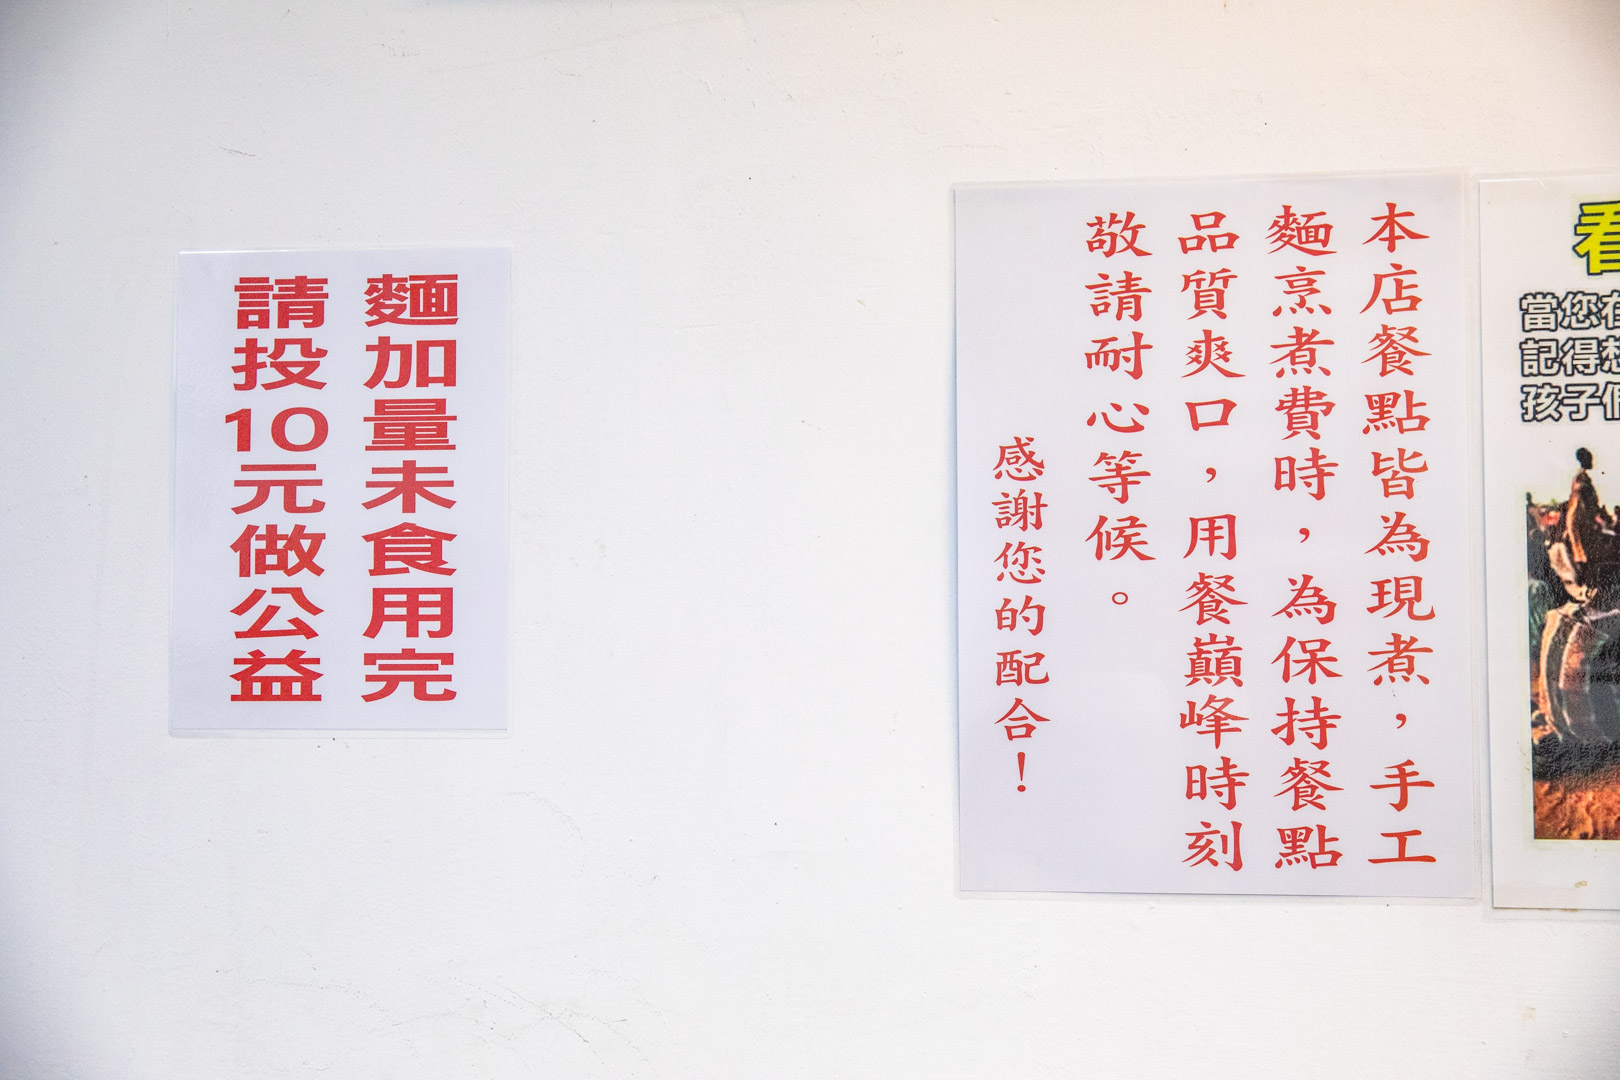 麵加量未食用完
請投10元做公益
本店餐點皆為現煮，手工
麵烹煮費時，為保持餐點
品質爽口，用餐巔峰時刻
敬請耐心等候。
感謝您的配合！
看
當您在
記得想
孩子們